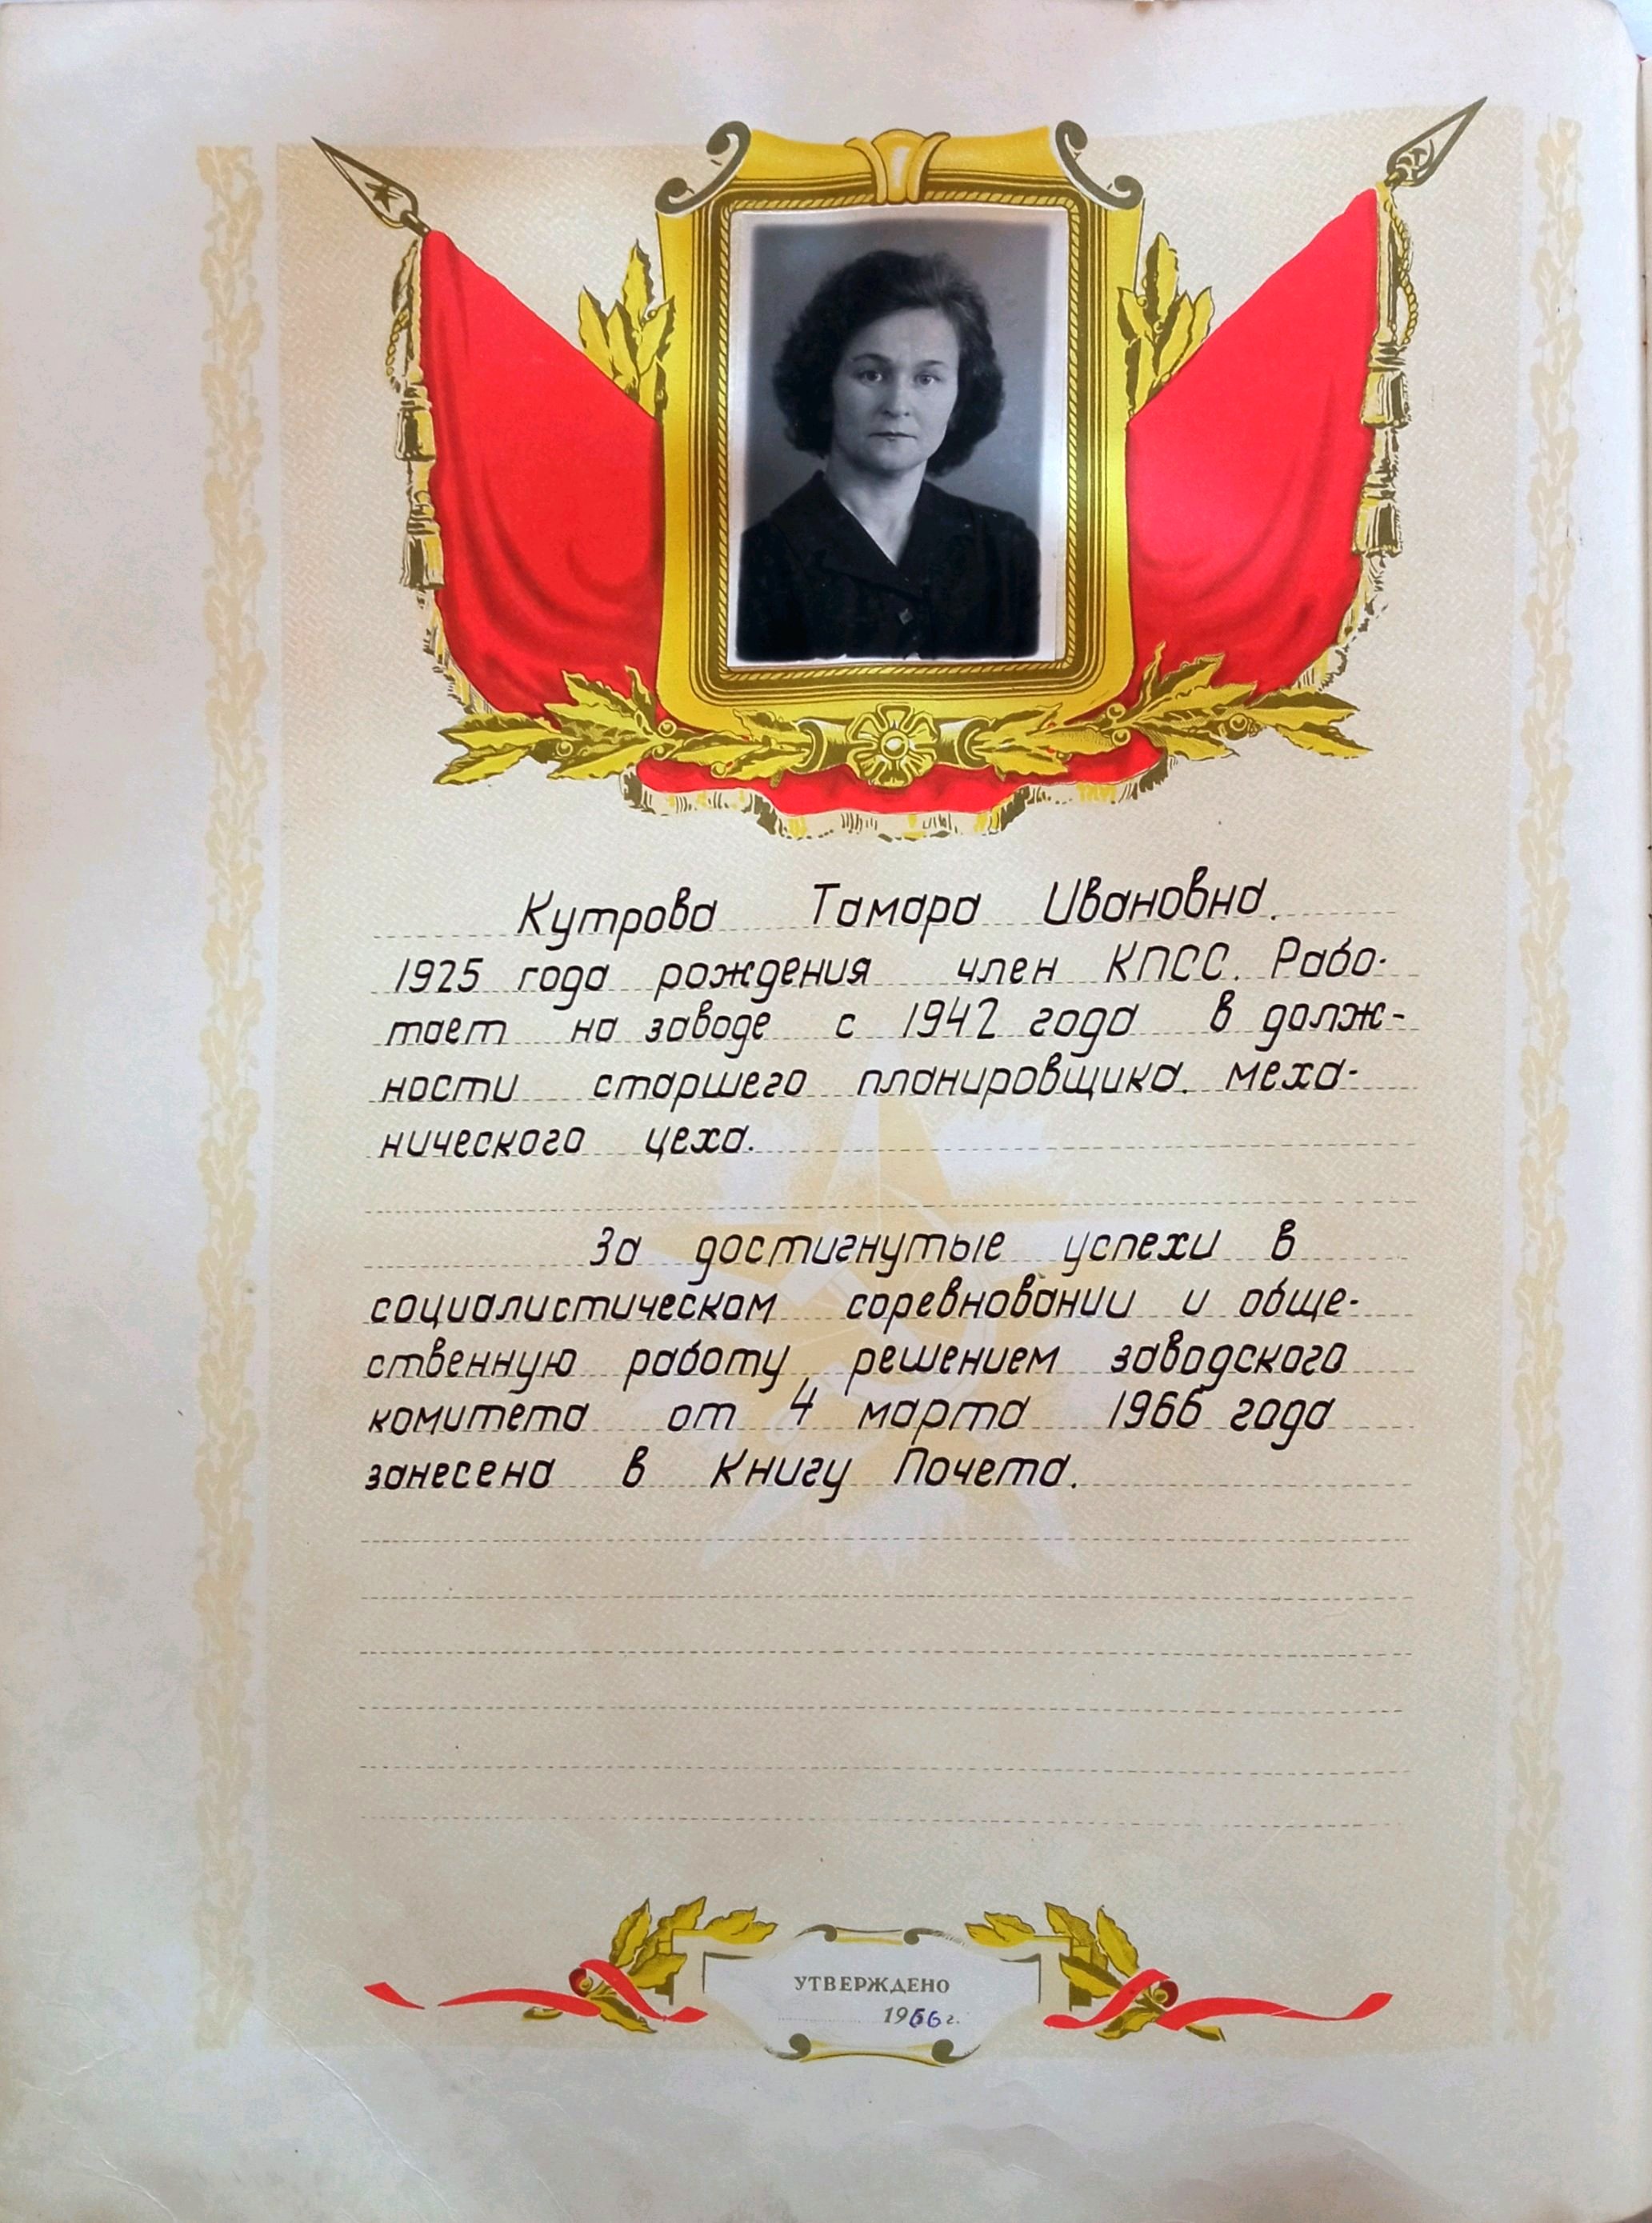 Кутрова Тамара Ивановна.
1925 года рождения член КПСС. Рабо-
тает на заводе с 1942 года в долж-
ности старшего планировщика. меха-
нического цеха.
За достигнутые успехи в
социалистическом соревновании и обще-
ственную работу, решением заводского
комитета от 4 марта 1966 года
занесена в Книгу Почета.
УТВЕРЖДЕНО
1966 г.